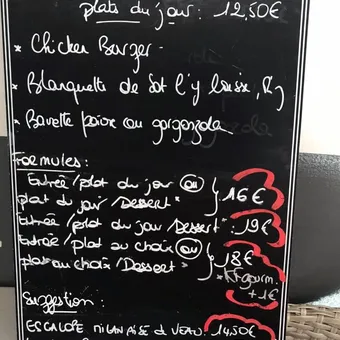 plats du jour : 12,50€
* Chicken Burger
* Blanquette de Sot l'y laisse, Rz
* Bavette poivre ou gorgonzola
Formules :
Entrée/plat du jour ou
plat du jour/Dessert* } 16€
Entrée/plat du jour/Dessert* : 19€
Entrée/plat au choix ou
plat au choix/Dessert* } 18€
*Kfé gourm.
+1€
Suggestion :
ESCALOPE MILANAISE de VEAU : 14,50€